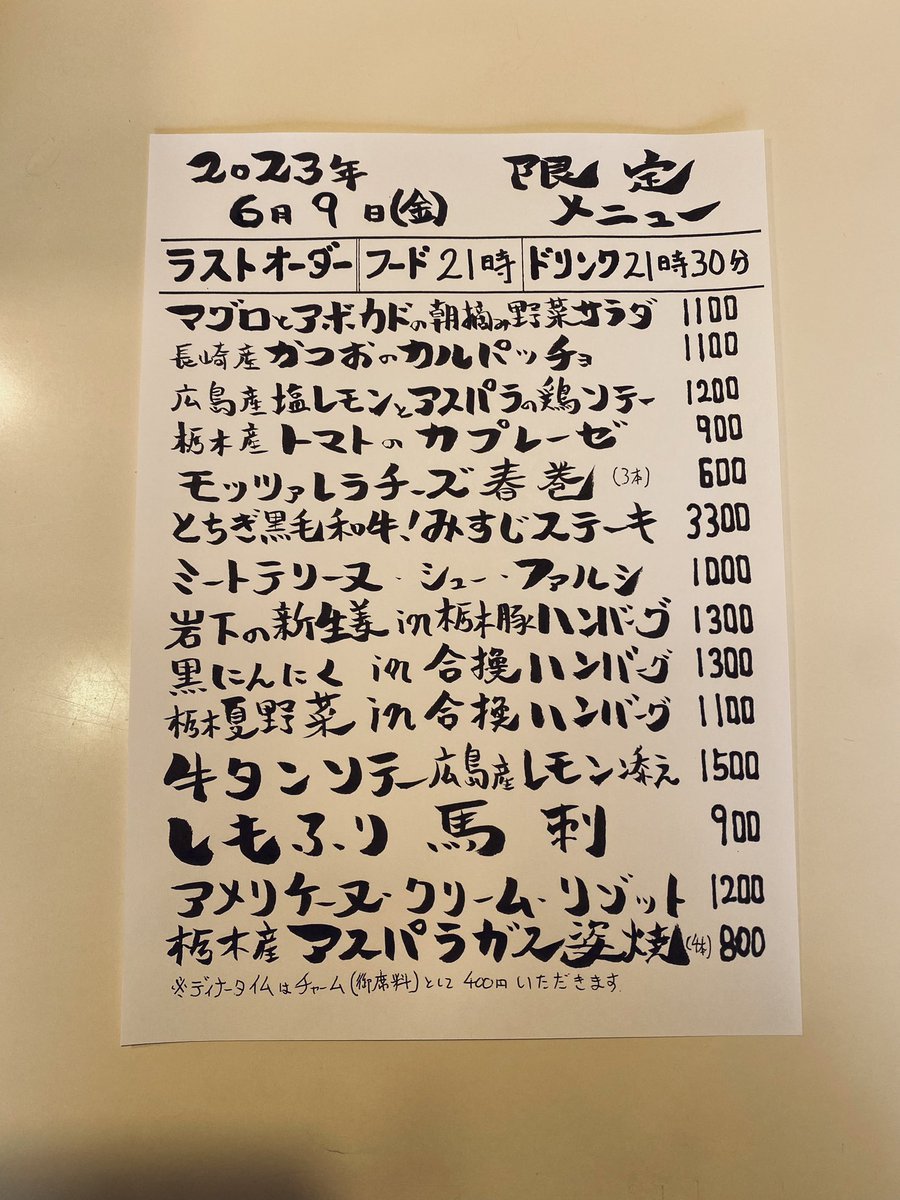 2023年
6月9日(金)
限定
メニュー
ラストオーダー フード21時 ドリンク21時30分
マグロとアボカドの朝摘み野菜サラダ 1100
長崎産かつおのカルパッチョ 1100
広島産塩レモンとアスパラの鶏ソテー 1200
栃木産トマトのカプレーゼ 900
モッツァレラチーズ春巻(3本) 600
とちぎ黒毛和牛!みすじステーキ 3300
ミートテリーヌ・シュー・ファルシ 1000
岩下の新生姜in栃木豚ハンバーグ 1300
黒にんにくin合挽ハンバーグ 1300
栃木夏野菜in合挽ハンバーグ 1100
牛タンソテー広島産レモン添え 1500
しもふり馬刺 900
アメリケーヌ・クリーム・リゾット 1200
栃木産アスパラガス姿焼(4本) 800
※ディナータイムはチャーム(御席料)として400円いただきます。